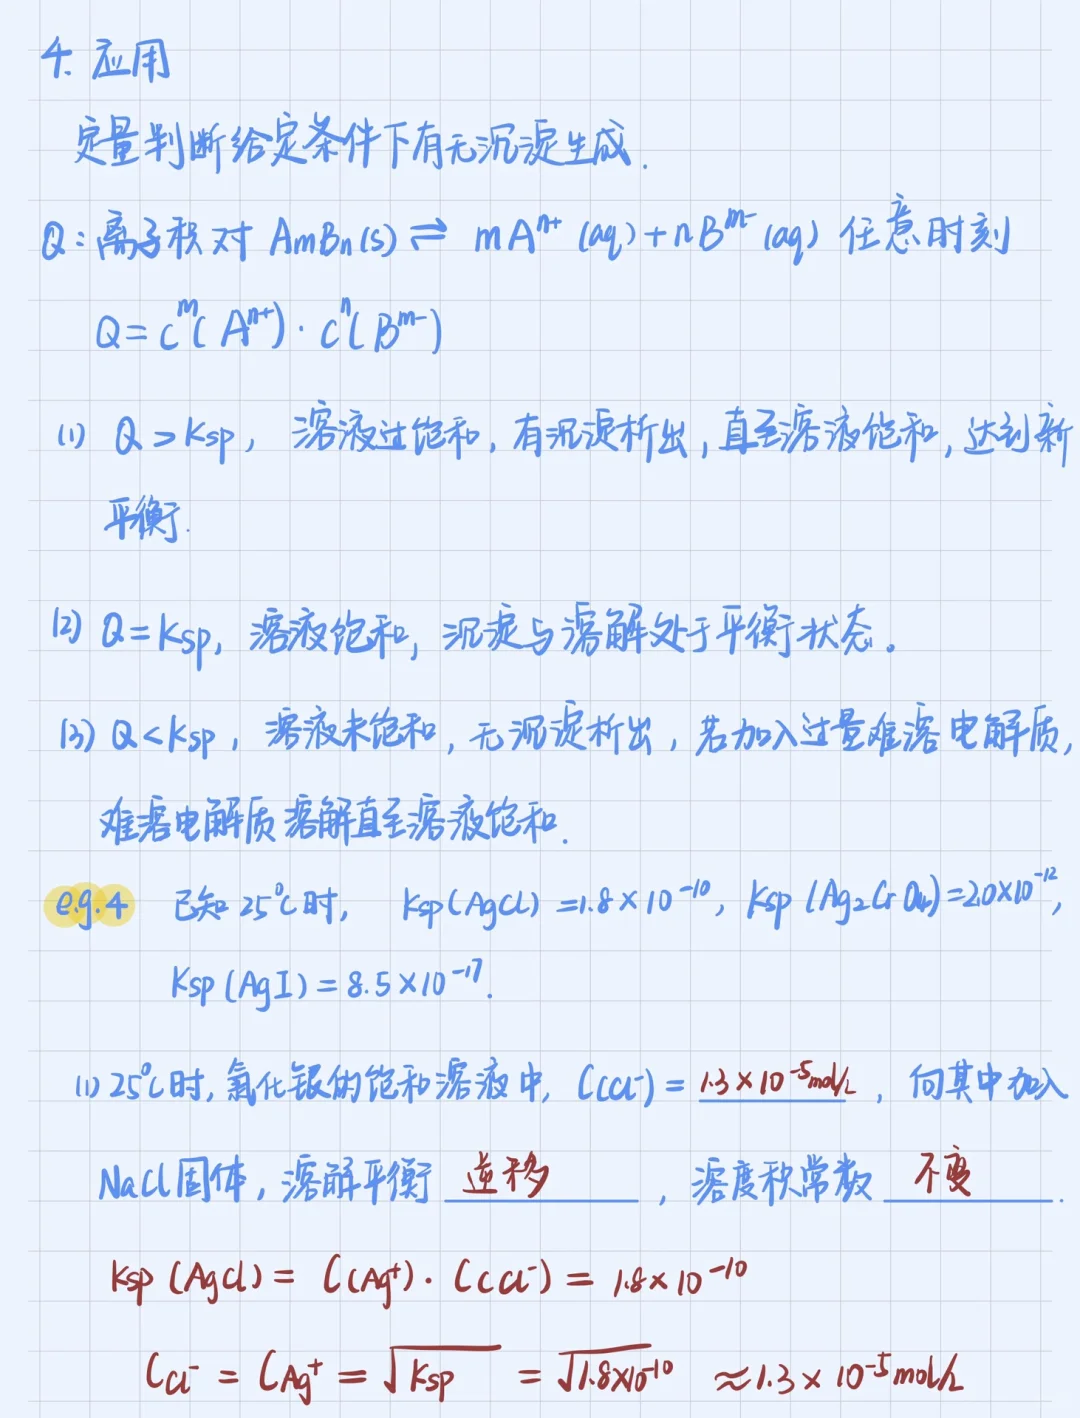 4. 应用
定量判断给定条件下有无沉淀生成.
Q:离子积 对 AmBn(s) ⇌ mAⁿ⁺(aq)+nBᵐ⁻(aq) 任意时刻
Q=cᵐ(Aⁿ⁺)·cⁿ(Bᵐ⁻)
(1) Q>Ksp, 溶液过饱和,有沉淀析出,直至溶液饱和,达到新
平衡.
(2) Q=Ksp, 溶液饱和, 沉淀与溶解处于平衡状态。
(3) Q<Ksp, 溶液未饱和,无沉淀析出,若加入过量难溶电解质,
难溶电解质溶解直至溶液饱和.
e.g.4 已知25℃时, Ksp(AgCl)=1.8×10⁻¹⁰, Ksp(Ag₂CrO₄)=2.0×10⁻¹²,
Ksp(AgI)=8.5×10⁻¹⁷.
(1) 25℃时,氯化银的饱和溶液中, C(Cl⁻)= 1.3×10⁻⁵mol/L, 向其中加入
NaCl固体,溶解平衡 逆移, 溶度积常数 不变.
Ksp(AgCl)= C(Ag⁺)·C(Cl⁻)= 1.8×10⁻¹⁰
C Cl⁻ = C Ag⁺ = √Ksp = √1.8×10⁻¹⁰ ≈1.3×10⁻⁵mol/L